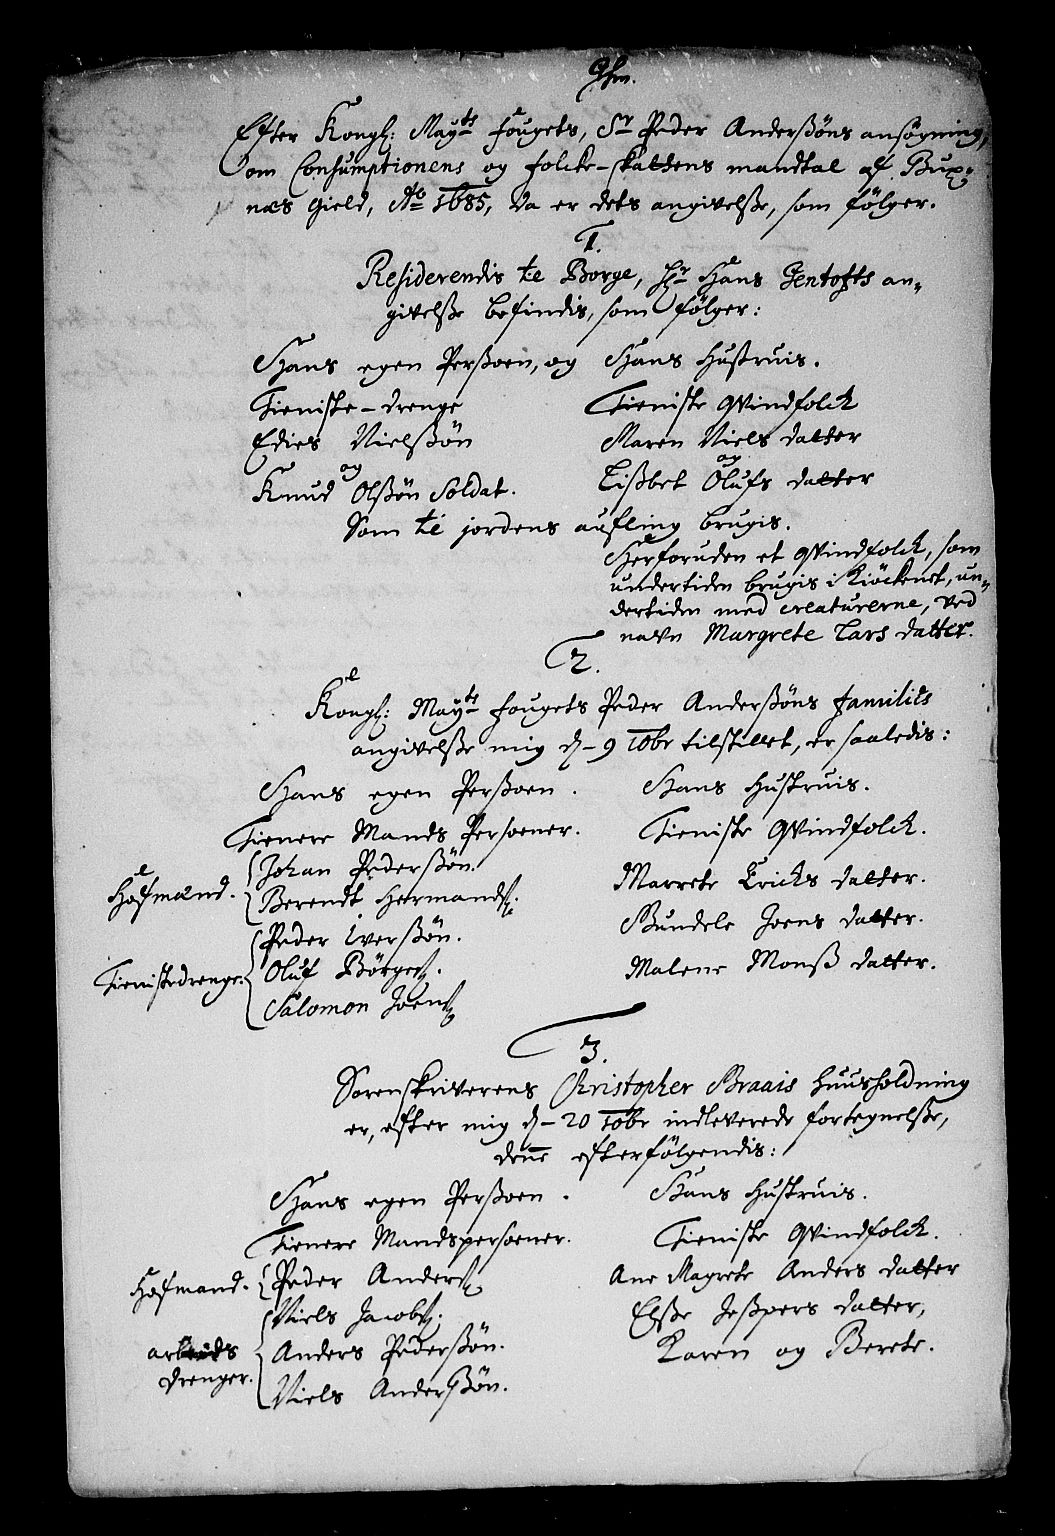 Efter Kongl: Mayts fougets, Sr Peder Anderßøns ansøgning,
om Consumptionens og folcke-skattens mandtal af Bux:
næs Gield, Ao 1685, Da er dets angivelße, som følger.
1.
Residerendis te Borge, Hr Hans Gentofts an„
givelße befindis, som følger:
Hans egen Perßoen, og Hans Hustruis.
Tieniste-drenge Tieniste Qvindfolck
Edies Nielßøn Maren Niels datter
og og
Knud Olßøn Soldat. Lißbet Olufs datter
Som te jordens aufling brugis.
Herforuden et Qvindfolck, som
undertiden brugis i Kiöckenet, un„
dertiden med creaturerne, ved
navn Margrete Lars datter.
2.
Kongl: Mayts fougets Peder Anderßøns families
angivelße mig d- 9 10br tilstillet, er saaledis:
Hans egen Perßoen. Hans Hustruis.
Tienere Mands Persoener. Tieniste Qvindfolck.
Johan Pederßøn.
Hofmænd. Marrete Erichs datter.
Berendt Hermands.
Peder Iverßøn. Gundele Joens datter.
Tienistedrenge. Oluf Børges. Malene Monß datter.
Salomon Joens
3.
Sorenskriverens Christopher Braais Huusholdning
er, efter mig d- 20 10br indleverede fortegnelße,
denne efterfølgendis:
Hans egen Perßoen. Hans Hustruis.
Tienere Mandspersoener. Tieniste Qvindfolck.
Hofmand. Peder Anders Ane Magrete Anders datter
Niels Jacobs. Elße Jeßpers datter,
arbeids Anders Pederßøn. Karen og Berete.
drenger. Niels Anderßøn.